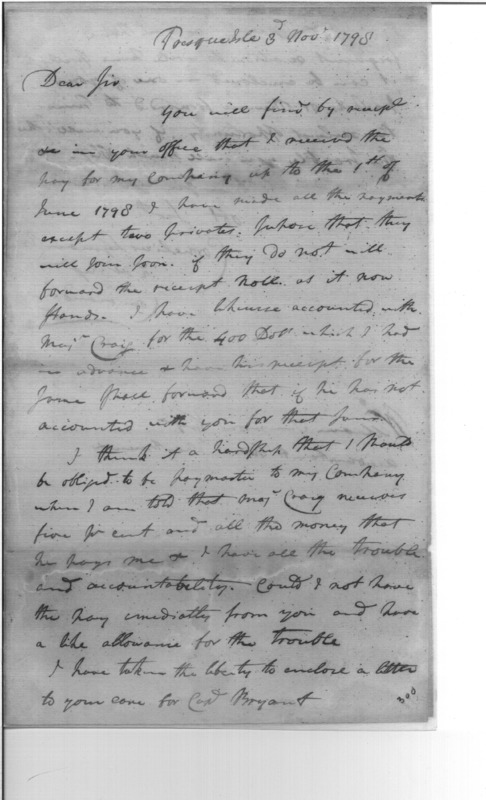 Presqueisle 3d Novr 1798
Dear Sir
You will find by receipt
&c in your office that I received the
pay for my Company up to the 1st of
June 1798 I have made all the payments
except two privates. Suppose that they
will join soon. if they do not will
forward the receipt Roll. as it now
stands. I have likewise accounted with
Majr Craig for the 400 Dols which I had
in advance & have his receipt for the
same shall forward that if he has not
accounted with you for that sum
I think it a hardship that I should
be obliged to be paymaster to my Company
when I am told that Majr Craig receives
five pr cent and all the money that
he pays me & I have all the trouble
and accountability. Could I not have
the pay emediatly from you and have
a like allowance for the trouble
I have taken the liberty to enclose a letter
to your care for Capt Bryant
300